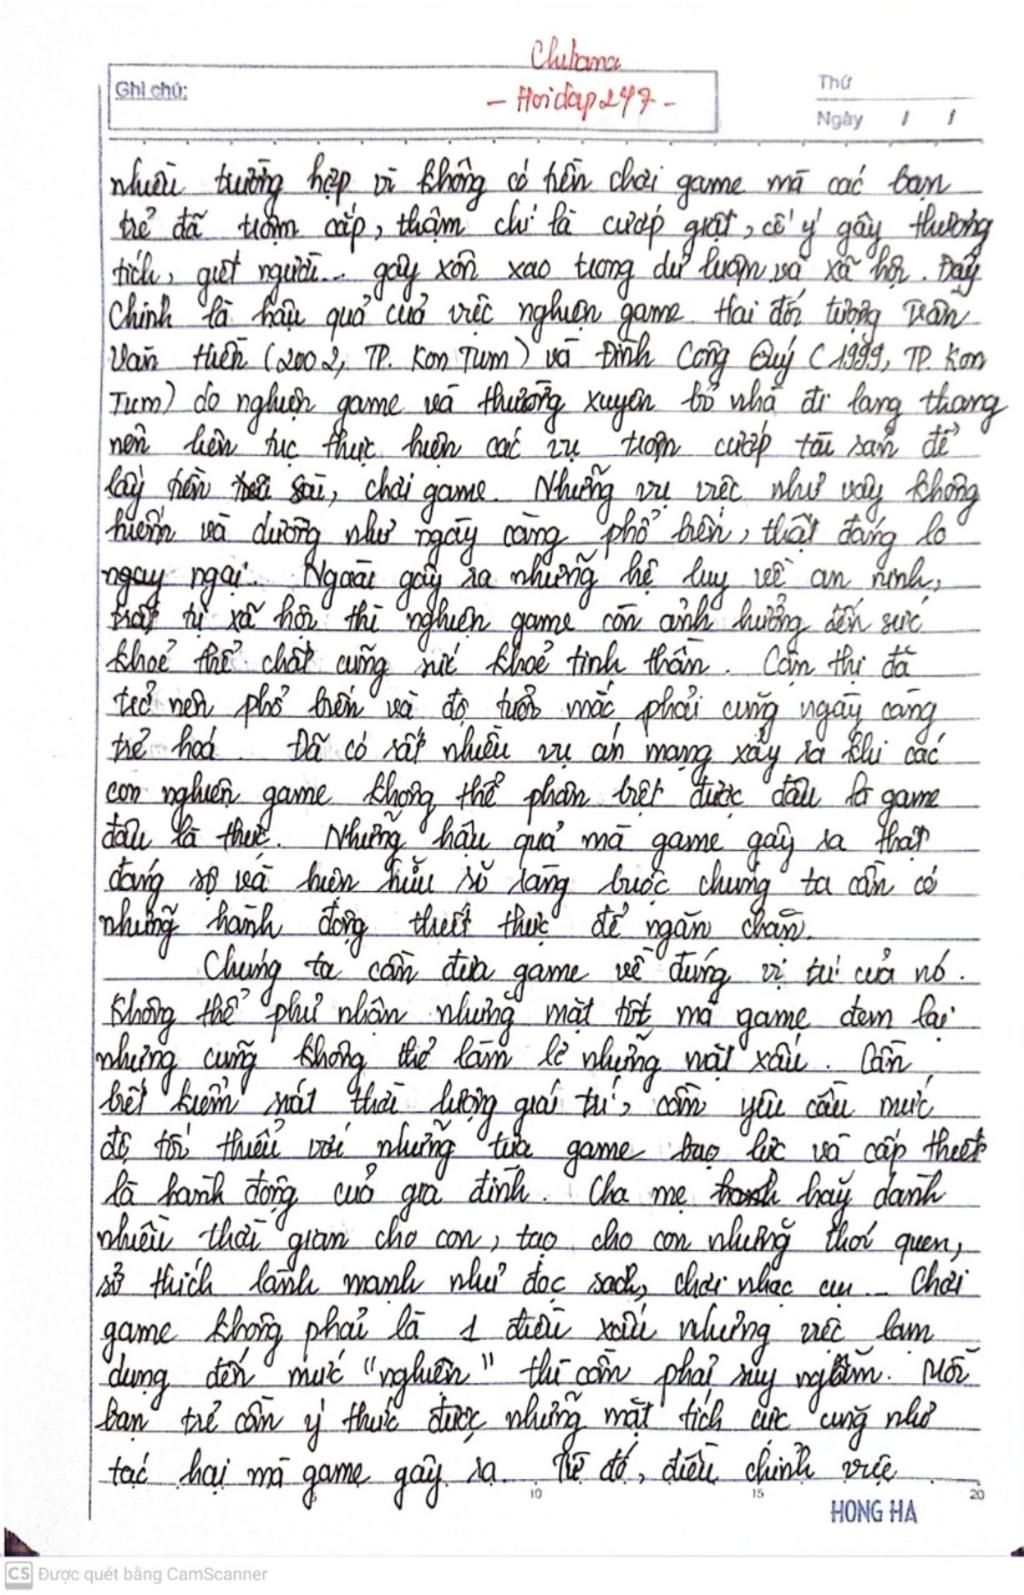 Chibana
Ghi chú:
- Hoidap247 -
Thứ
Ngày / /
nhiều trường hợp vì không có tiền chơi game mà các bạn
trẻ đã trộm cắp, thậm chí là cướp giật, cố ý gây thương
tích, giết người... gây xôn xao trong dư luận và xã hội. Đấy
Chính là hậu quả của việc nghiện game. Hai đối tượng Trần
Văn Hiền (2002, TP. Kon Tum) và Đinh Công Quý (1999, TP. Kon
Tum) do nghiện game và thường xuyên bỏ nhà đi lang thang
nên liên tục thực hiện các vụ trộm cướp tài sản để
lấy tiền tiêu sài, chơi game. Những vụ việc như vậy không
hiếm và dường như ngày càng phổ biến, thật đáng lo
ngay ngại. Ngoài gây ra những hệ lụy về an ninh,
trật tự xã hội thì nghiện game còn ảnh hưởng đến sức
khoẻ thể chất cũng sức khoẻ tinh thần. Cận thị đã
trở nên phổ biến và độ tuổi mắc phải cũng ngày càng
trẻ hoá. Đã có rất nhiều vụ án mạng xảy ra khi các
con nghiện game không thể phân biệt được đâu là game
đâu là thực. Những hậu quả mà game gây ra thật
đáng sợ và hiện hữu rõ ràng buộc chúng ta cần có
những hành động thiết thực để ngăn chặn.
Chúng ta cần đưa game về đúng vị trí của nó.
Không thể phủ nhận những mặt tốt mà game đem lại
nhưng cũng không thể làm lơ những mặt xấu. Cần
biết kiểm soát thời lượng giải trí, cần yêu cầu mức
độ tối thiểu với những tựa game bạo lực và cấp thiết
là hành động của gia đình. Cha mẹ hãy dành
nhiều thời gian cho con, tạo cho con những thói quen,
sở thích lành mạnh như đọc sách, chơi nhạc cụ... Chơi
game không phải là 1 điều xấu nhưng việc lạm
dụng đến mức "nghiện" thì cần phải suy ngẫm. Mỗi
bạn trẻ cần ý thức được những mặt tích cực cũng như
tác hại mà game gây ra. Từ đó, điều chỉnh việc
10 15 20
HONG HA
CS Được quét bằng CamScanner